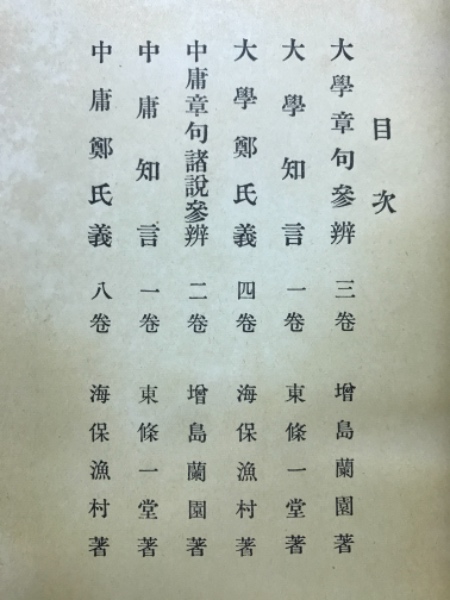 目次
大學章句參辨 三卷 增島蘭園著
大學知言 一卷 東條一堂著
大學鄭氏義 四卷 海保漁村著
中庸章句諸說參辨 二卷 增島蘭園著
中庸知言 一卷 東條一堂著
中庸鄭氏義 八卷 海保漁村著